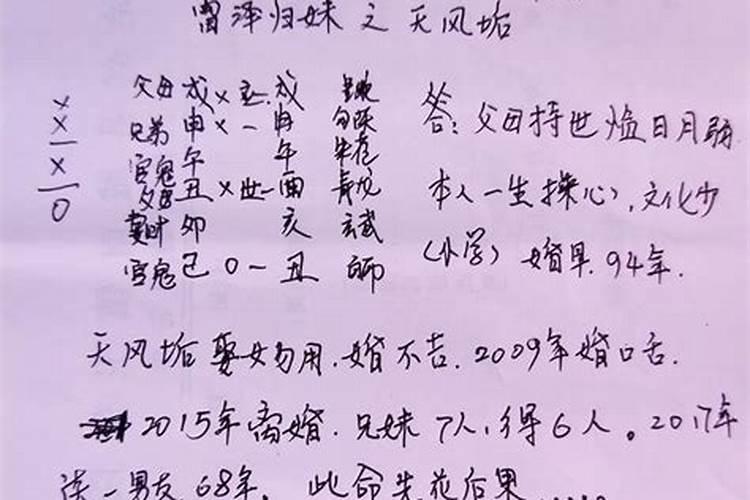 雷泽归妹之天风垢
× 父母戌×应戌 答:父母持世临日月弱
× 兄弟申×一申
一 官鬼午 午
× 父母丑×世一酉 青龙 本人一生操心,文化少
一 妻财卯 亥 玄武
0 官鬼巳0一丑 (小学)婚早.94年.
天风垢娶女勿用.婚不吉.2009年婚口舌.
2015年离婚.兄妹7人,得6人。2017年
一男友68年. 此命先花后果.....